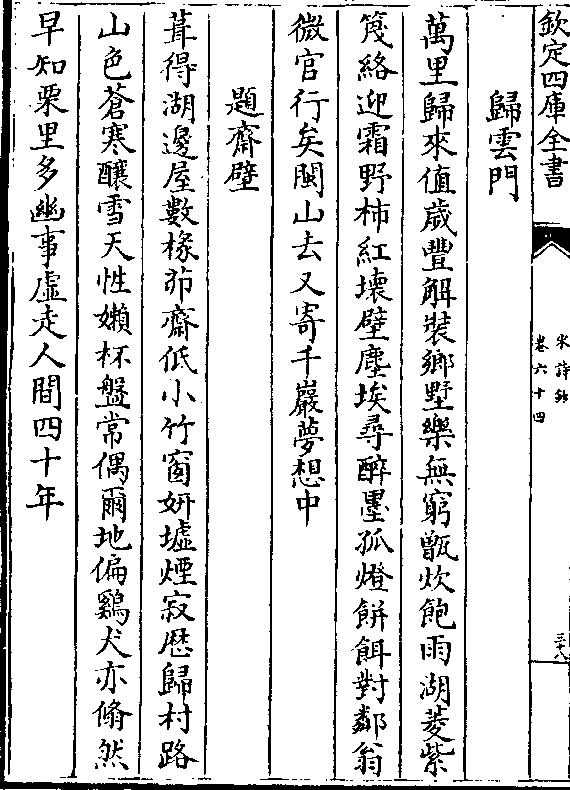 欽定四庫全書
宋詩鈔
卷六十四
三十八
歸雲門
萬里歸來值歲豐解裝鄉墅樂無窮甑炊飽雨湖菱紫
篾絡迎霜野柿紅壞壁塵埃尋醉墨孤燈餅餌對鄰翁
微官行矣閩山去又寄千巖夢想中
題齋壁
葺得湖邊屋數椽茆齋低小竹窗妍墟煙寂歴歸村路
山色蒼寒釀雪天性嬾杯盤常偶爾地偏鷄犬亦翛然
早知栗里多幽事虛走人間四十年